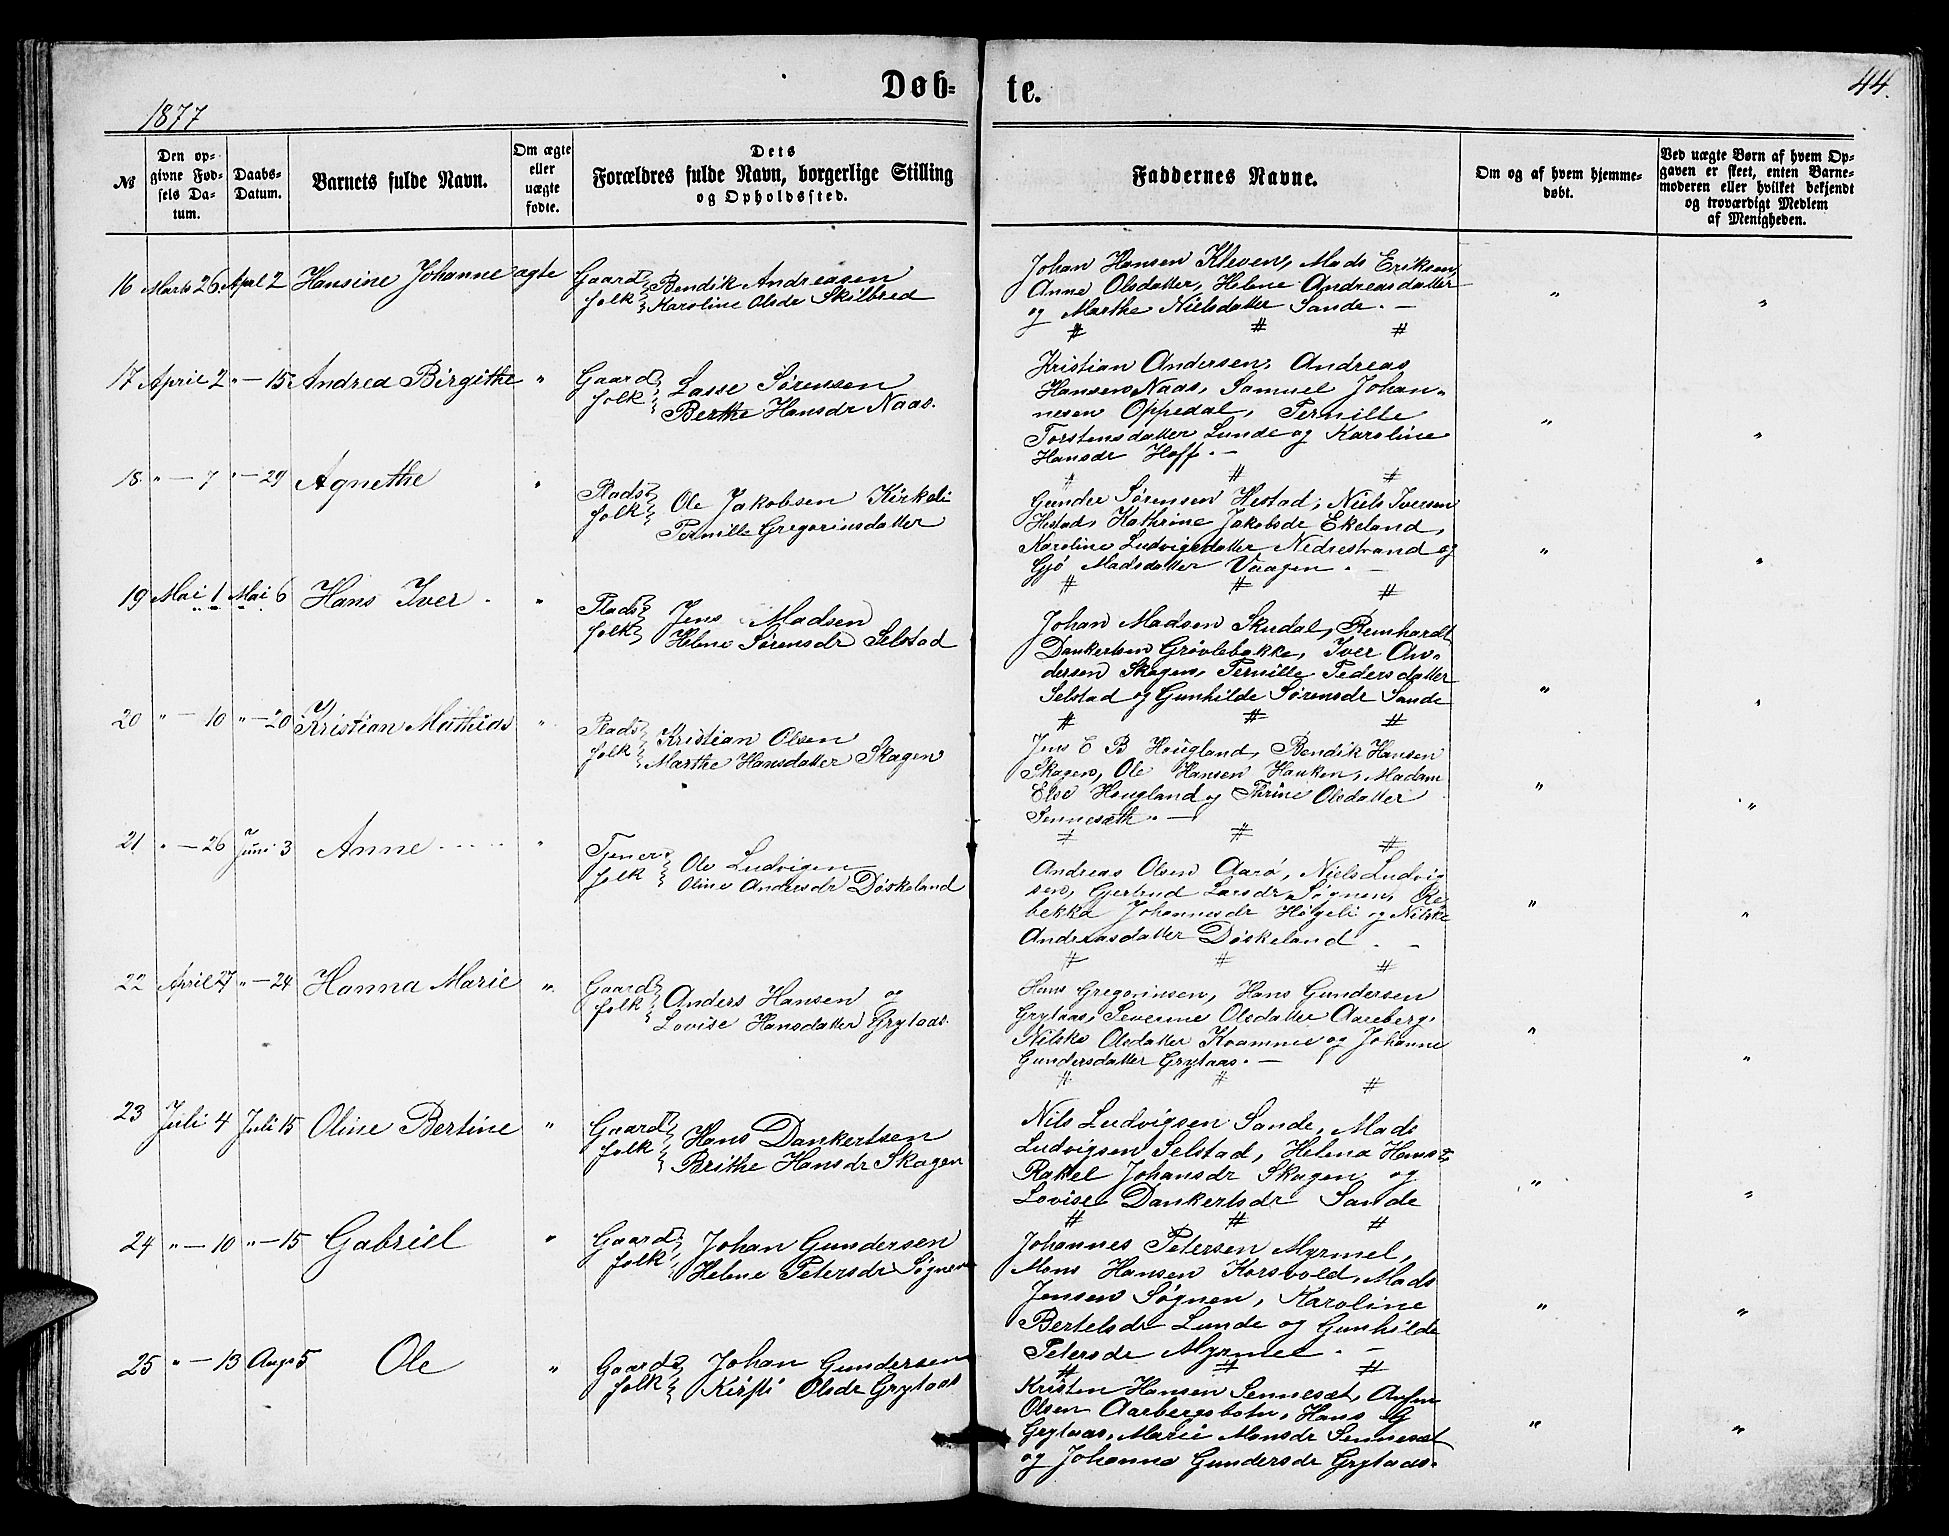 Døb-
te.
44.
1877
№
Den op-
givne Fød-
sels Da-
tum.
Daabs-
Datum.
Barnets fulde Navn.
Om ægte
eller
uægte
fødte.
Dets
Forældres fulde Navn, borgerlige Stilling
og Opholdssted.
Faddernes Navne.
Om og af hvem hjemme-
døbt.
Ved uægte Børn af hvem Op-
gaven er skeet, enten Barne-
moderen eller hvilket bekjendt
og troværdigt Medlem
af Menigheden.
16 Marts 26. April 2 Hansine Johanne ægte Gaard Bendik Andreasen
folk Karoline Olsdr Skilbred
Johan Hansen Kleven, Mads Eriksen,
Anne Olsdatter, Helene Andreasdatter
og Marthe Nielsdatter Sande. —
17 April 2 " — 15 Andrea Birgithe " Gaard Lasse Sørensen
folk Berthe Hansdr Naas.
Kristian Andersen, Andreas
Hansen Naas, Samuel Johan-
nesen Oppedal, Pernille
Torstensdatter Lunde og Karoline
Hansdr Hoff. —
18. " — 7 " — 29 Agnethe " Plads Ole Jakobsen Kirkeli
folk Pernille Gregoriusdatter
Gunder Sørensen Hestad, Niels Iversen
Hestad, Kathrine Jakobsdr Ekeland,
Karoline Ludvigsdatter Nedrestrand og
Gjø Madsdatter Vaagen. —
19 Mai 1 Mai 6 Hans Iver " Plads Jens Madsen
folk Helene Sørensdr Selstad
Johan Madsen Skudal, Reinhardt
Dankertsen Grøvlebakke, Iver An-
dersen Skagen, Pernille Pedersdatter
Selstad og Gunhilde Sørensdr Sande
20 " — 10 " — 20 Kristian Mathias " Plads Kristian Olsen
folk Marthe Hansdatter Skagen
Jens E B Hougland, Bendik Hansen
Skagen, Ole Hansen Hauken, Madam
Else Hougland og Thrine Olsdatter
Sennesæth. —
21 " — 26 Juni 3 Anne " Tjener Ole Ludvigen
folk Oline Andersdr Døskeland
Andreas Olsen Aarø, Niels Ludvig
sen, Gjertrud Larsdr Søgnen, Re-
bekka Johannesdr Høgeli og Nilske
Andreasdatter Døskeland. —
22 April 27 " — 24 Hanna Marie " Gaard Anders Hansen og
folk Lovise Hansdatter Grytaas.
Hans Gregoriusen, Hans Gundersen
Grytaas, Severine Olsdatter Aareberg,
Nilske Olsdatter Kvamme og Johanne
Gundersdatter Grytaas. —
23 Juli 4 Juli 15 Oline Bertine " Gaard Hans Dankertsen
folk Brithe Hansdr Skagen
Nils Ludvigsen Sande, Mads
Ludvigsen Selstad, Helena Hansdr
Rakel Johansdr Skagen og
Lovise Dankertsdr Sande
24 " — 10 " — 15 Gabriel " Gaard Johan Gundersen
folk Helene Petersdr Søgnen
Johannes Petersen Myrmel,
Mons Hansen Korsvold, Mads
Jensen Søgnen, Karoline
Bertelsdr Lunde og Gunhilde
Petersdr Myrmel. —
25 " — 13 Aug. 5 Ole " Gaard Johan Gundersen
folk Kirsti Olsdr Grytaas
Kristen Hansen Sennesæt,
Olsen Aarbergsbotn, Hans G
Grytaas, Marie Monsdr Sennesæt
og Johanna Gundersdr Grytaas.